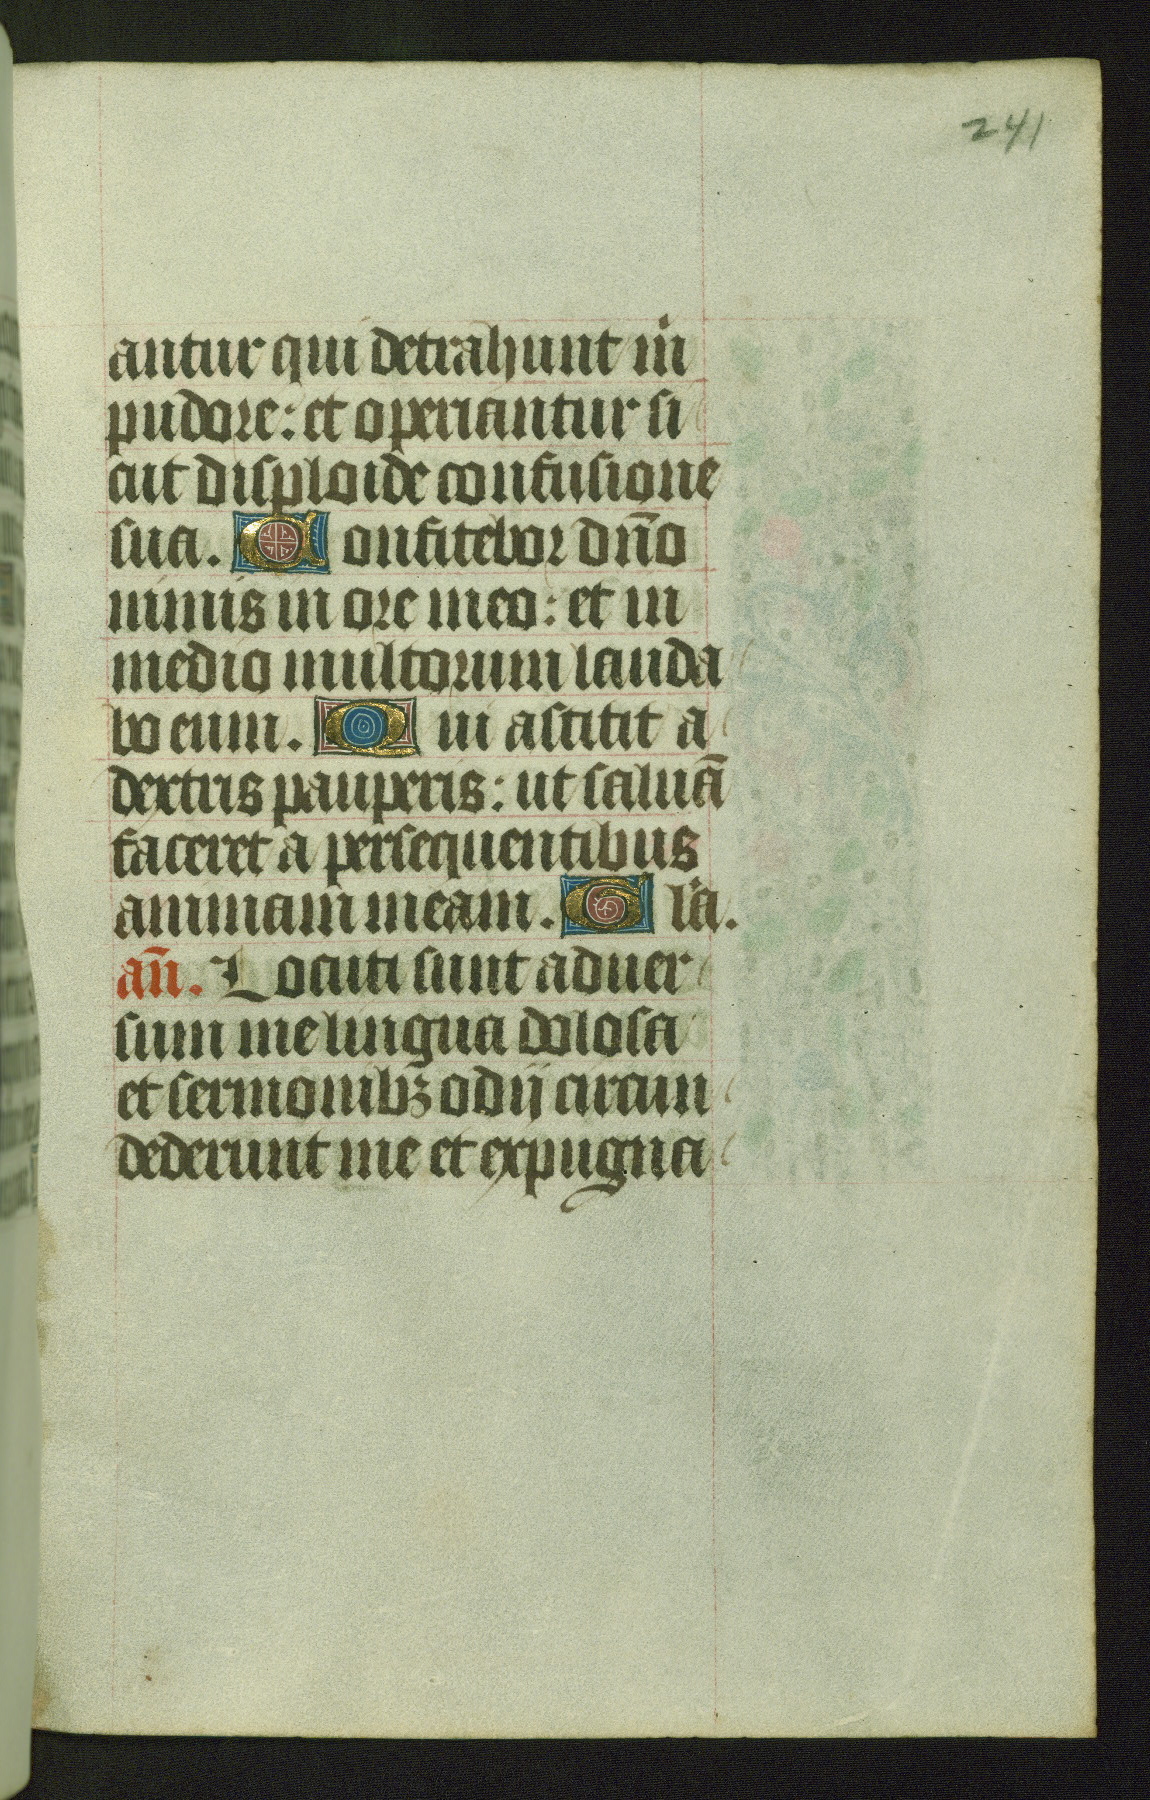 241
antur qui detrahunt m̄
pudore: et operiantur si
cut disploide confusione
sua. Confitebor dn̄o
nimis in ore meo: et in
medio multorum lauda
bo eum. Qui astitit a
dextris pauperis: ut saluā
faceret a persequentibus
animam meam. Gl̄a.
an̄. Locuti sunt aduer
sum me lingua dolosa
et sermonibꝫ odij circum
dederunt me et expugna